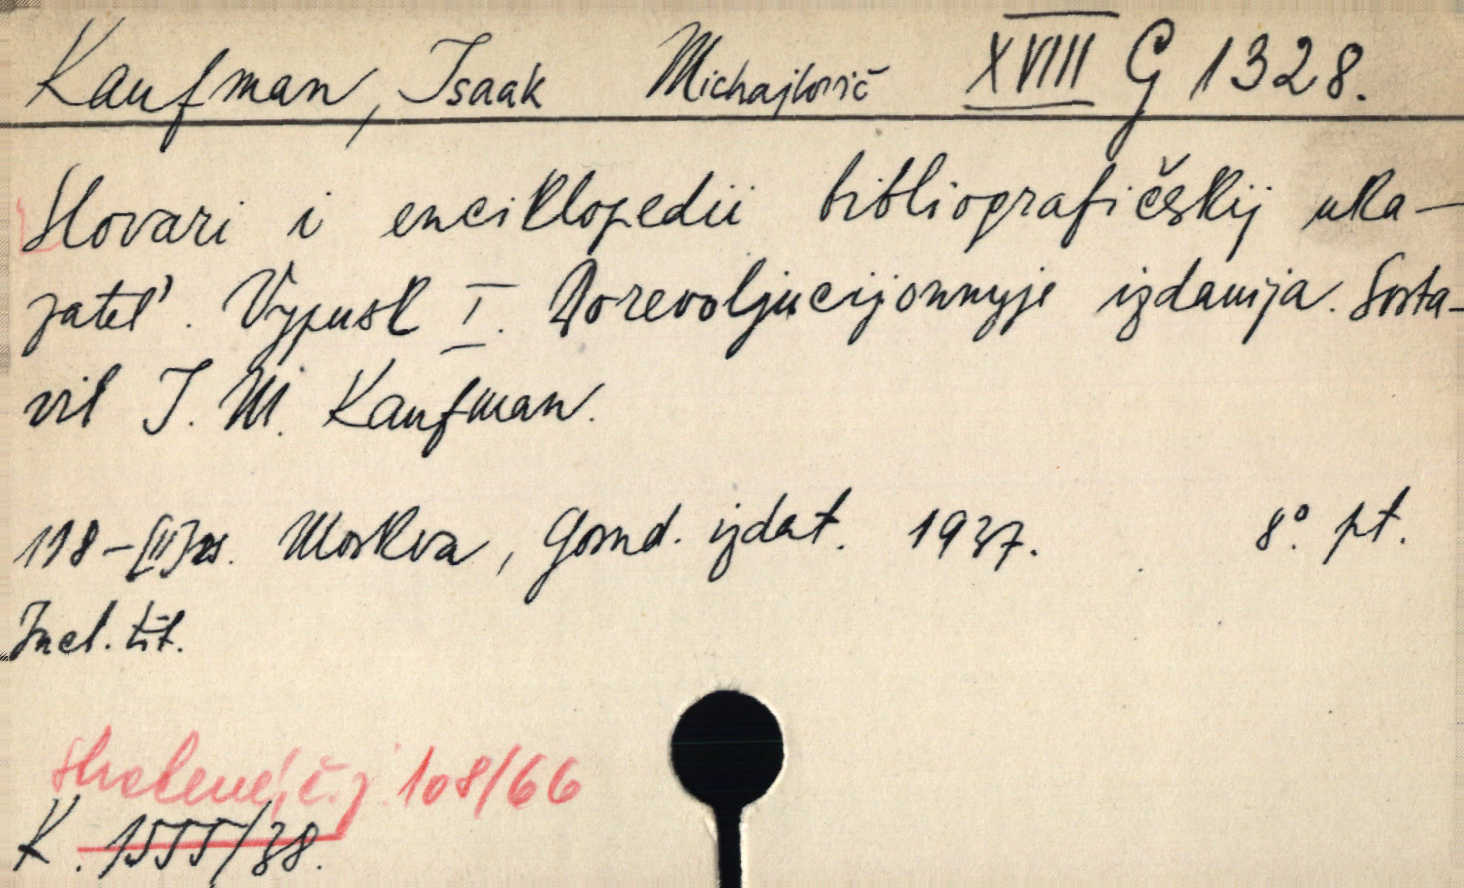 Kaufman, Isaak Michajlovič XVIII G 1328.
Slovari i enciklopedii bibliografičeskij uka-
zatel'. Vypusk I. Dorevoljucijonnyje izdanija. Sosta-
vil I. M. Kaufman.
Moskva, Gosud. izdat. 1937. 8° pt.
Incl. tit.
č. j. 108/66
K. 1555/38.